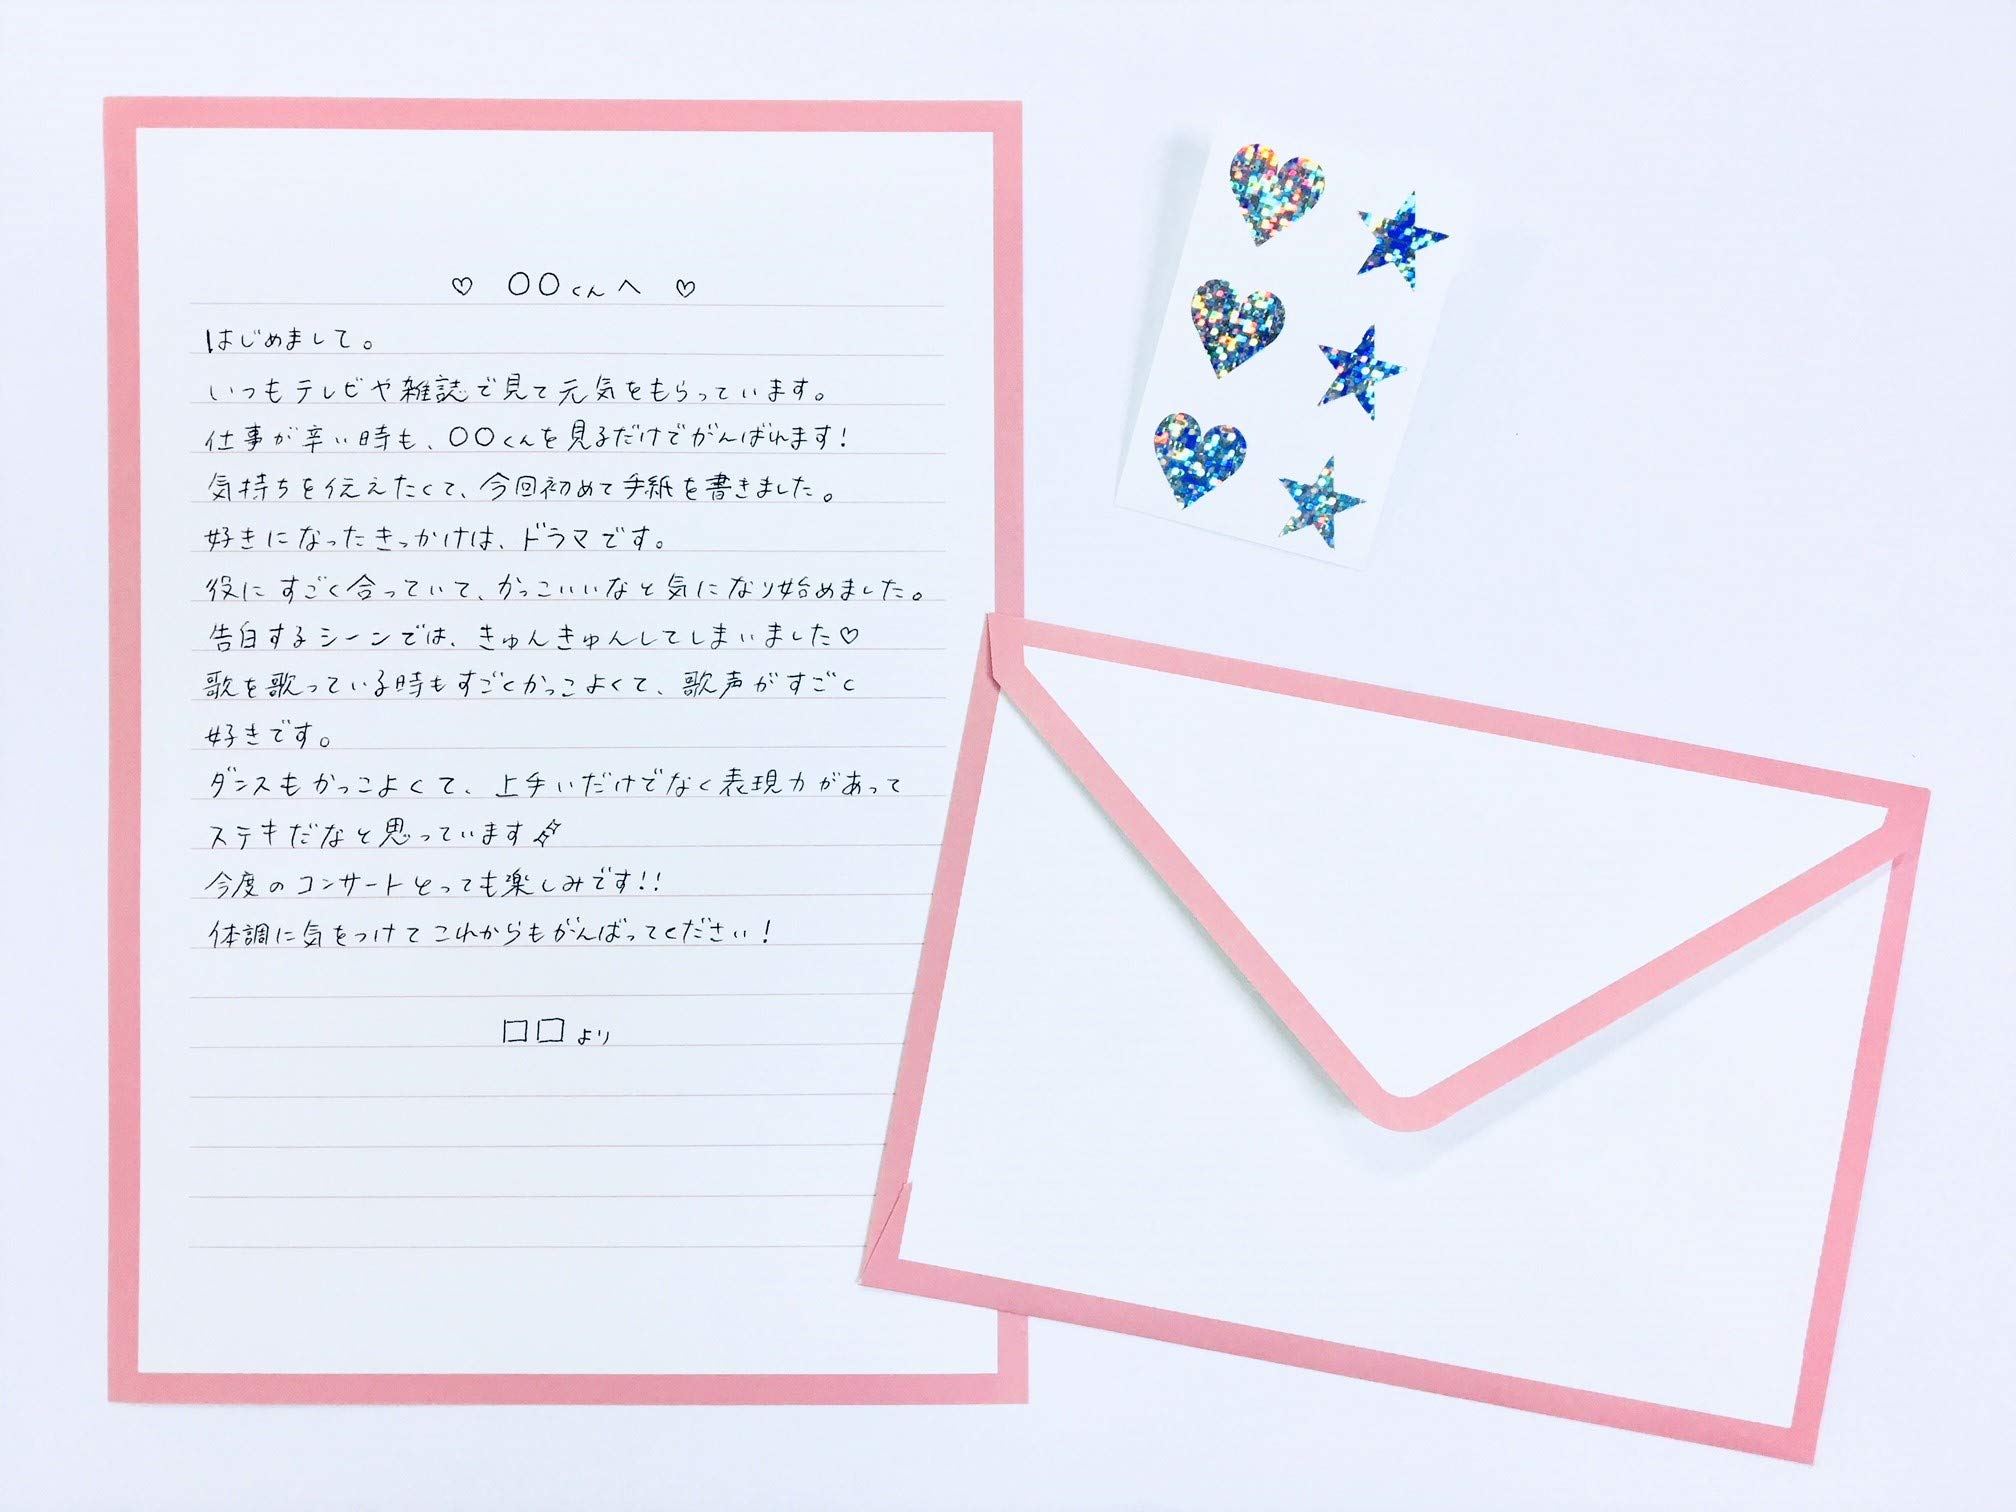 ♡ 〇〇くんへ ♡
はじめまして。
いつもテレビや雑誌で見て元気をもらっています。
仕事が辛い時も、〇〇くんを見るだけでがんばれます!
気持ちを伝えたくて、今回初めて手紙を書きました。
好きになったきっかけは、ドラマです。
役にすごく合っていて、かっこいいなと気になり始めました。
告白するシーンでは、きゅんきゅんしてしまいました♡
歌を歌っている時もすごくかっこよくて、歌声がすごく
好きです。
ダンスもかっこよくて、上手いだけでなく表現力があって
ステキだなと思っています
今度のコンサートとっても楽しみです!!
体調に気をつけてこれからもがんばってください!
□□より